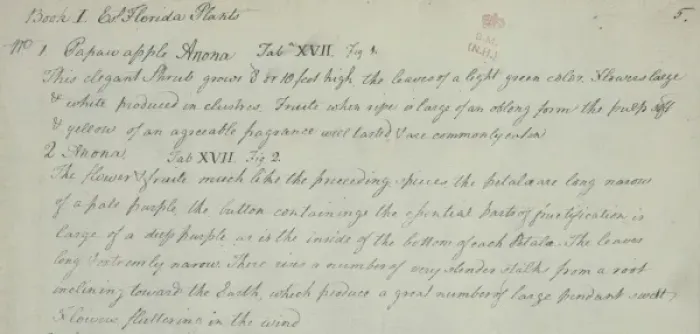 Book I. Et. Florida Plants 5.
No 1 Papaw apple Anona Tab XVII. Fig 1.
B.M.
(N.H.)
This elegant Shrub grows 8 or 10 feet high, the leaves of a light green color. Flowers large
& white produced in clustres. Fruite when ripe is large of an oblong form the pulp soft
& yellow of an agreeable fragrance well tasted & are commonly eaten
2 Anona. Tab XVII. Fig 2.
The flower & fruite much like the preceeding spices the petala are long narrow
of a pale purple, the button containinge the essential parts of fructification is
large of a deep purple as is the inside of the bottom of each Petala. The leaves
long & extremly narrow. There rises a number of very slender stalks from a root
inclining toward the Earth, which produce a great number of large pendant sweet
Flowers fluttering in the wind